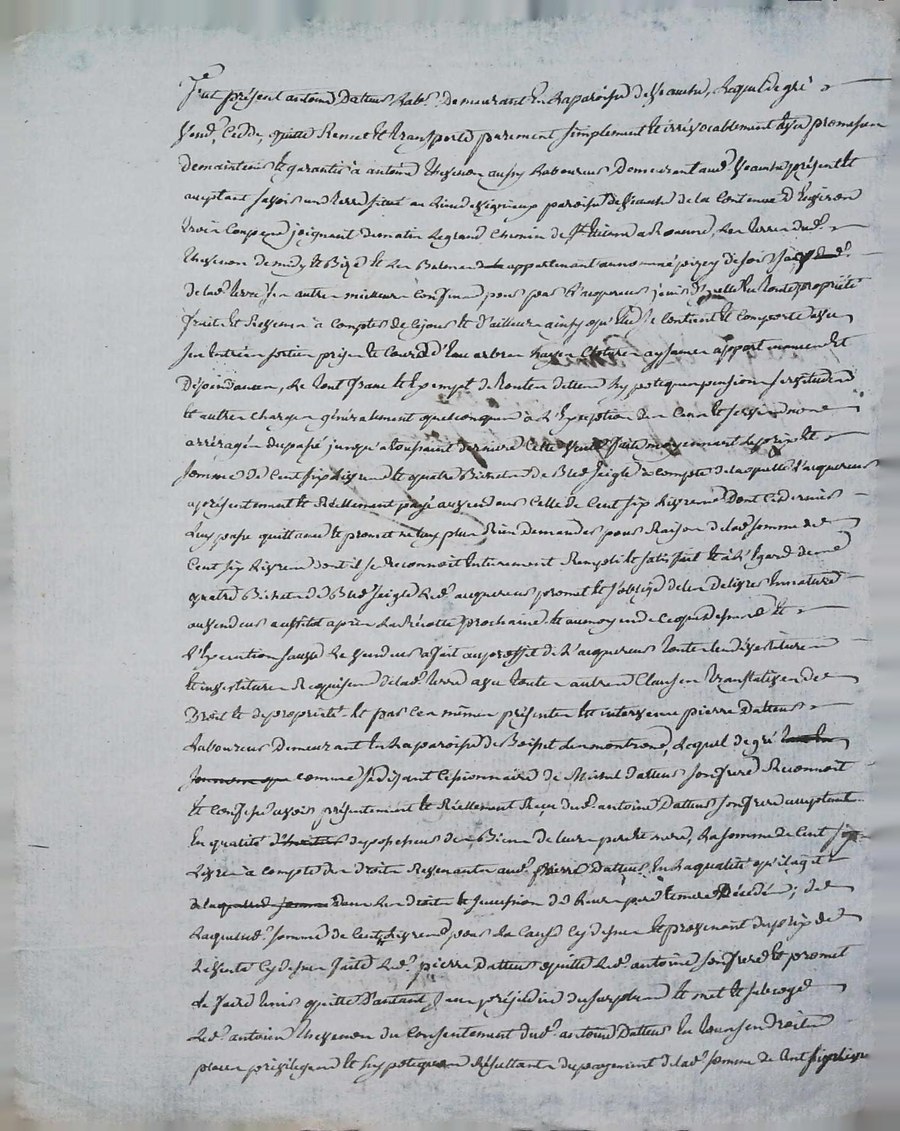 fut présent antoine Datteus Lab.r Demeurant En La paroisse de Veauche, Lequel de gré
Vend, Cedde, quitte Remet Et transporte purement simplement Et irrévocablement avec promesse
de maintenir Et garantir à antoine Thevenon aussy Laboureur Demeurant aud. Veauche présent Et
acceptant savoir une terre située au paroisse de Veauche de la Contenue D'Environ
trois Coupées joignant de matin Le grand Chemin de St Etienne a Roanne, Les terres dud.
Thevenon de midy Et Bize Et Les appartenant de soir
de lad. terre, ses autres meilleurs Confins pour par L'acquereur jouir d'icelle En toute propriété
fruits Et Revenus à Compter de Ce jour Et d'ailleurs ainsy qu'Elle Se Contient Et Comporte avec
Ses Entrées sorties prises Et Cours D'Eau arbres hayes Clotures aysances apport mouvement Et
Dépendances, Le tout franc Et Exempt de toutes dettes hypoteques pensions servitudes
Et autres Charges généralement quelconques à L'Exception des Cens Et servis
arrérages du passé jusqu'a toussaint derniere Cette Vente faite moyennant Le prix Et
Somme de Cent six Livres Et quatre Bichets de Bled Seigle à compte de laquelle L'acquereur
a présentement Et Réellement payé au Vendeur Celle de Cent six Livres Dont Ce dernier
Luy passe quittance Et promet ne luy plus Rien Demander pour Raison de lad. somme de
Cent six Livres dont il se Reconnoit Entierement Rempli Et satisfait Et à L'Egard des
quatre Bichets de Bled Seigle Led. acquereur promet Et s'oblige de les Delivrer En nature
au Vendeur aussitot après La Récolte prochaine Et au moyen de Ce que dessus Et
L'Execution sauve Le Vendeur a fait au proffit de L'acquereur toutes les dévestitures
Et investitures Requises de lad. terre avec toutes autres Clauses translatives de
Droit Et de propriété Et par Ces mêmes présentes Est intervenu pierre Datteus
Laboureur Demeurant En La paroisse de Boisset Les montrond, Lequel de gré
comme se disant Cessionnaire de Michel Datteus son frere Reconnoit
Et Confesse avoir présentement Et Réellement Reçu dud. antoine Datteus son frere acceptant
En qualité de possesseur des Biens de leurs pere Et mere, La somme de Cent six
Livres à compte des droits Revenants aud. pierre Datteus En La qualité qu'il agit
dans Les droits Et succession de Leurs pere Et mere Décédés; de
Laquelle somme de Cent six Livres pour La Cause Cy dessus Et provenant du prix de
La Vente Cy dessus faite Led. pierre Datteus quitte Led. antoine son frere Et promet
Le faire tenir quitte D'autant Sans préjudice du surplus Et met Et subroge
Led. antoine Thevenon du Consentement dud. antoine Datteus En tous ses droits
places privileges Et hypoteques Résultants du payement de lad. somme de Cent six Livres